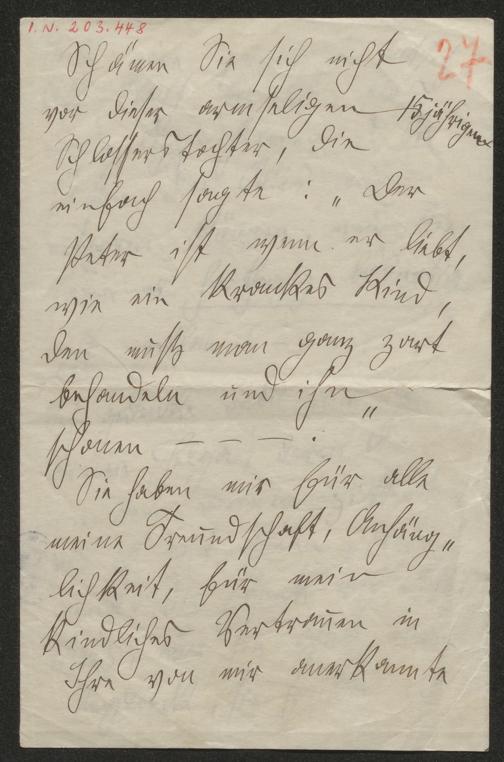 I.N. 203.448
27
Schämen Sie sich nicht
vor dieser armseligen 15jährigen
Schlosserstochter, die
einfach sagte : „Der
Peter ist wenn er liebt,
wie ein krankes Kind,
den muß man ganz zart
behandeln und ihn
schonen — — — ."
Sie haben mir für alle
meine Freundschaft, Anhäng„
lichkeit, für mein
kindliches Vertrauen in
Ihre von mir anerkannte